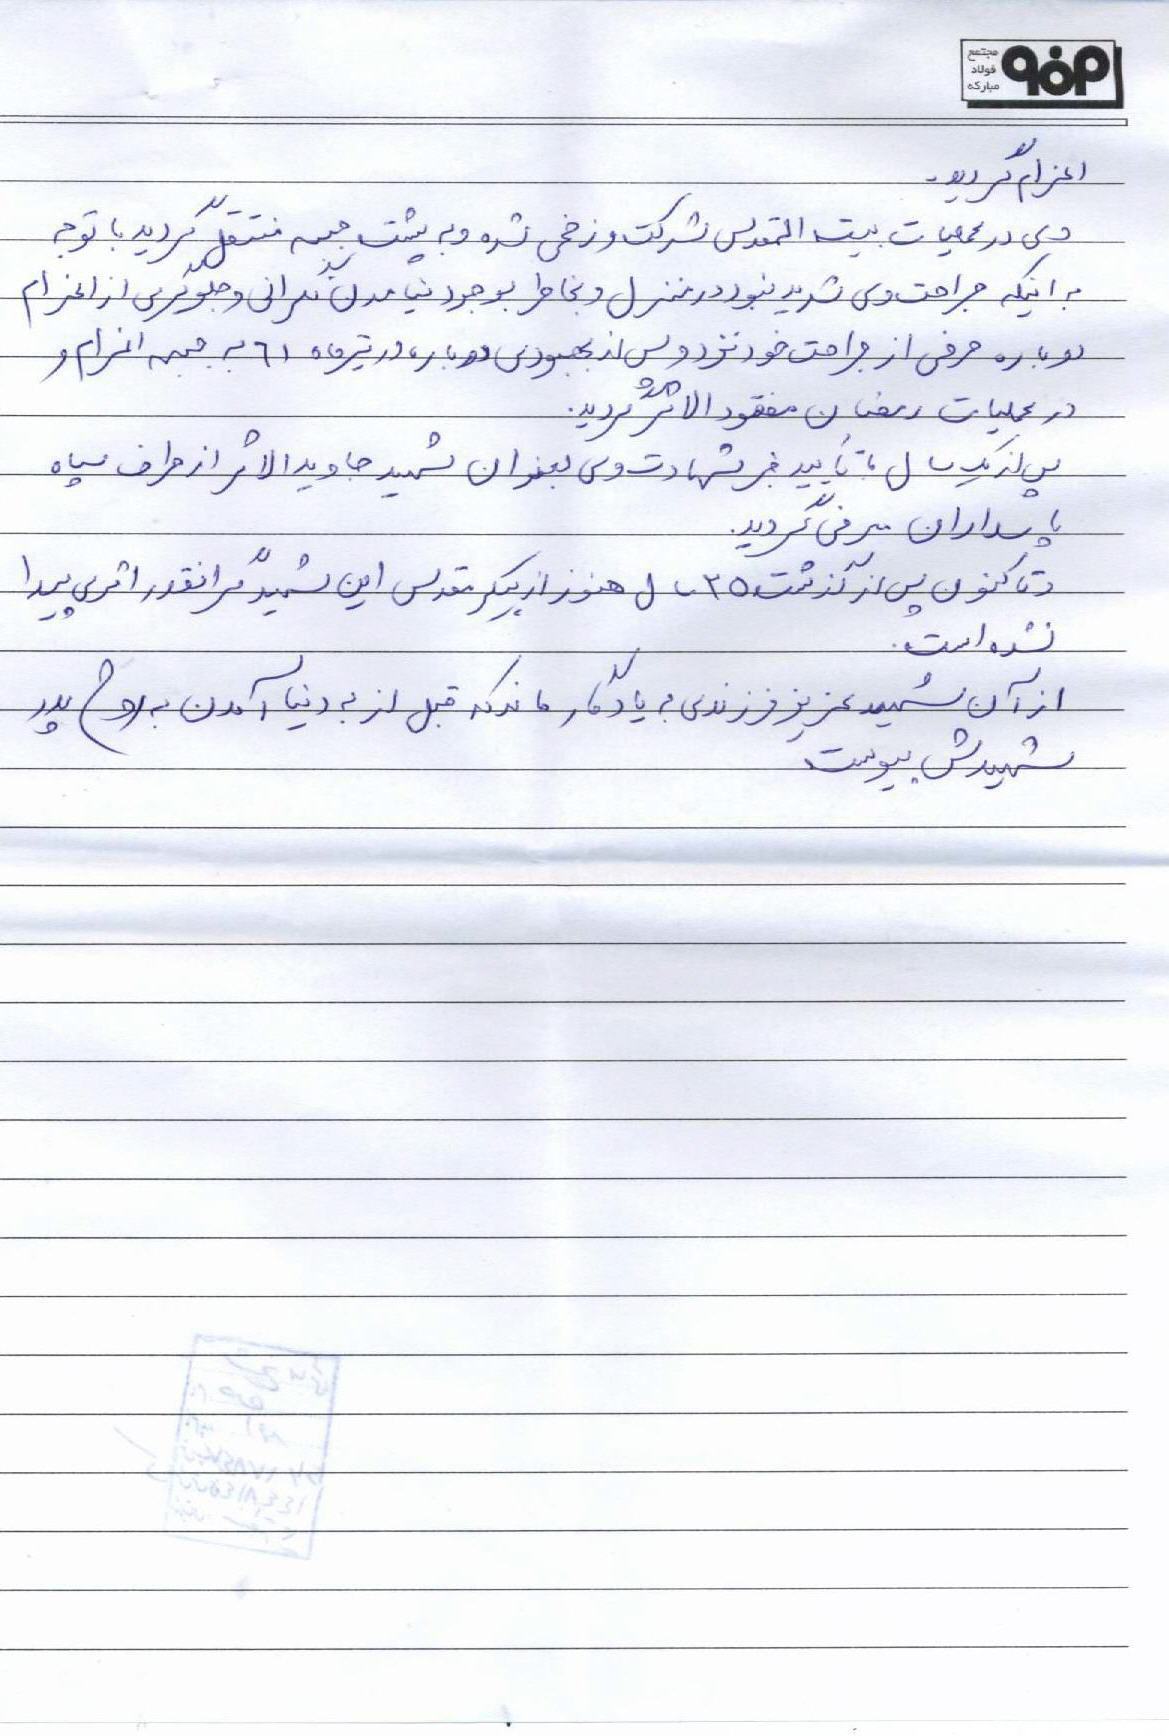 مجتمع
فولاد
مبارکه
اعزام گردید.
وی در عملیات بیت المقدس شرکت و زخمی شده و به پشت جبهه منتقل گردید با توجه
به اینکه جراحت وی شدید نبود در منزل و بخاطر بوجود نیامدن نگرانی و جلوگیری از اعزام
دوباره حرفی از جراحت خود نزد و پس از بهبودی دوباره در تیرماه ٦١ به جبهه اعزام و
در عملیات رمضان مفقود الاثر گردید.
پس از یک سال با تأیید خبر شهادت وی بعنوان شهید جاوید الاثر از طرف سپاه
پاسداران معرفی گردید.
و تا کنون پس از گذشت ٣٥ سال هنوز از پیکر مقدس این شهید گرانقدر اثری پیدا
نشده است.
از آن شهید عزیز فرزندی به یادگار ماند که قبل از به دنیا آمدن به روح پدر
شهیدش پیوست